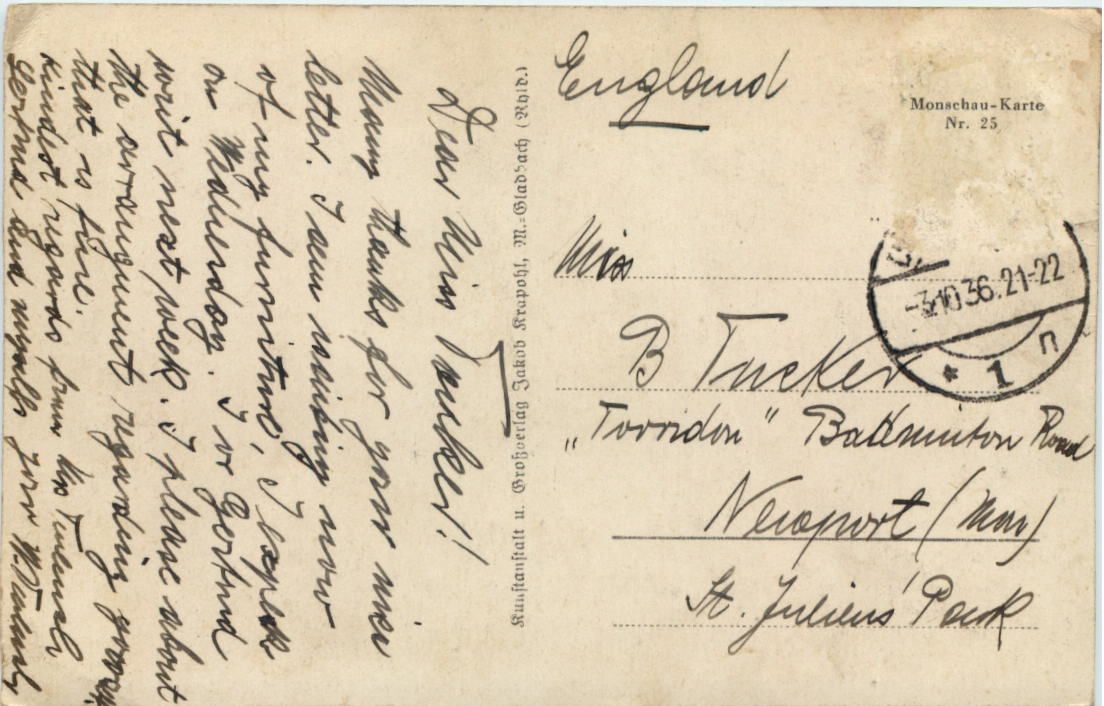 England
Monschau-Karte
Nr. 25
-3.10.36.21-22
* 1 n
Miss
B Tucker
„Torridon" Badminton Road
Newport (Mon)
St. Juliens' Park
Kunstanstalt u. Großverlag Jakob Krapohl, M.=Gladbach (Rhld.)
Dear Miss Tucker!
Many thanks for your nice
letter. I am waiting now
of my furniture, I expect
on Wednesday. I or Gertrud
writ next week. I please about
the arrangement regarding
that is fine.
Kindest regards from Mrs
Gertrud and myself your W.